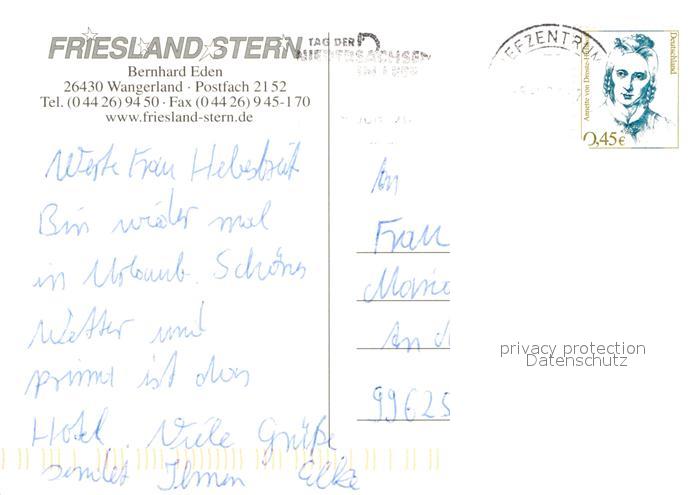 FRIESLAND STERN
Bernhard Eden
26430 Wangerland · Postfach 21 52
Tel. (0 44 26) 94 50 · Fax (0 44 26) 9 45-170
www.friesland-stern.de
TAG DER
NIEDERSACHSEN
BRIEFZENTRUM
Deutschland
Annette von Droste-Hülshoff
0,45€
Werte Frau
Bin wieder mal
in Urlaub. Schönes
Wetter und
prima ist das
Hotel. Viele Grüße
sendet Ihnen Elke
An
Frau
Mari
An d
99625
privacy protection
Datenschutz